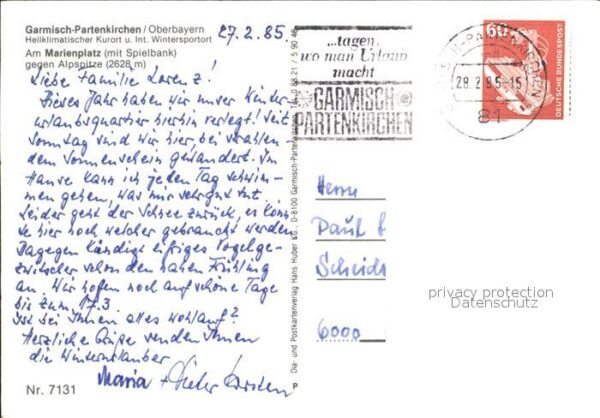 Garmisch-Partenkirchen / Oberbayern
Heilklimatischer Kurort u. Int. Wintersportort
Am Marienplatz (mit Spielbank)
gegen Alpspitze (2628 m)
27.2.85
Liebe Familie Lorenz!
Dieses Jahr haben wir unser Winter
urlaubsquartier hierhin verlegt! Seit
Sonntag sind wir hier, bei strahlen-
dem Sonnenschein gewandert. Im
Hause kann ich jeden Tag schwim-
men gehen, was mir sehr gut tut.
Leider geht der Schnee zurück, es könn
te hier noch welcher gebraucht werden
Dagegen kündigt eifriges Vogelge-
zwitscher schon den nahen Frühling
an. Wir hoffen noch auf schöne Tage
bis zum 17.3
Ist bei Ihnen alles wohlauf?
Herzliche Grüße senden Ihnen
die Winterurlauber
Maria + Dieter
Nr. 7131
Dia- und Postkartenverlag Hans Huber KG, D-8100 Garmisch-Partenkirchen
...tagen,
wo man Urlaub
macht
GARMISCH
PARTENKIRCHEN
28.2.85-15
81
60
DEUTSCHE BUNDESPOST
Herrn
Paul
Scheids
6000
privacy protection
Datenschutz